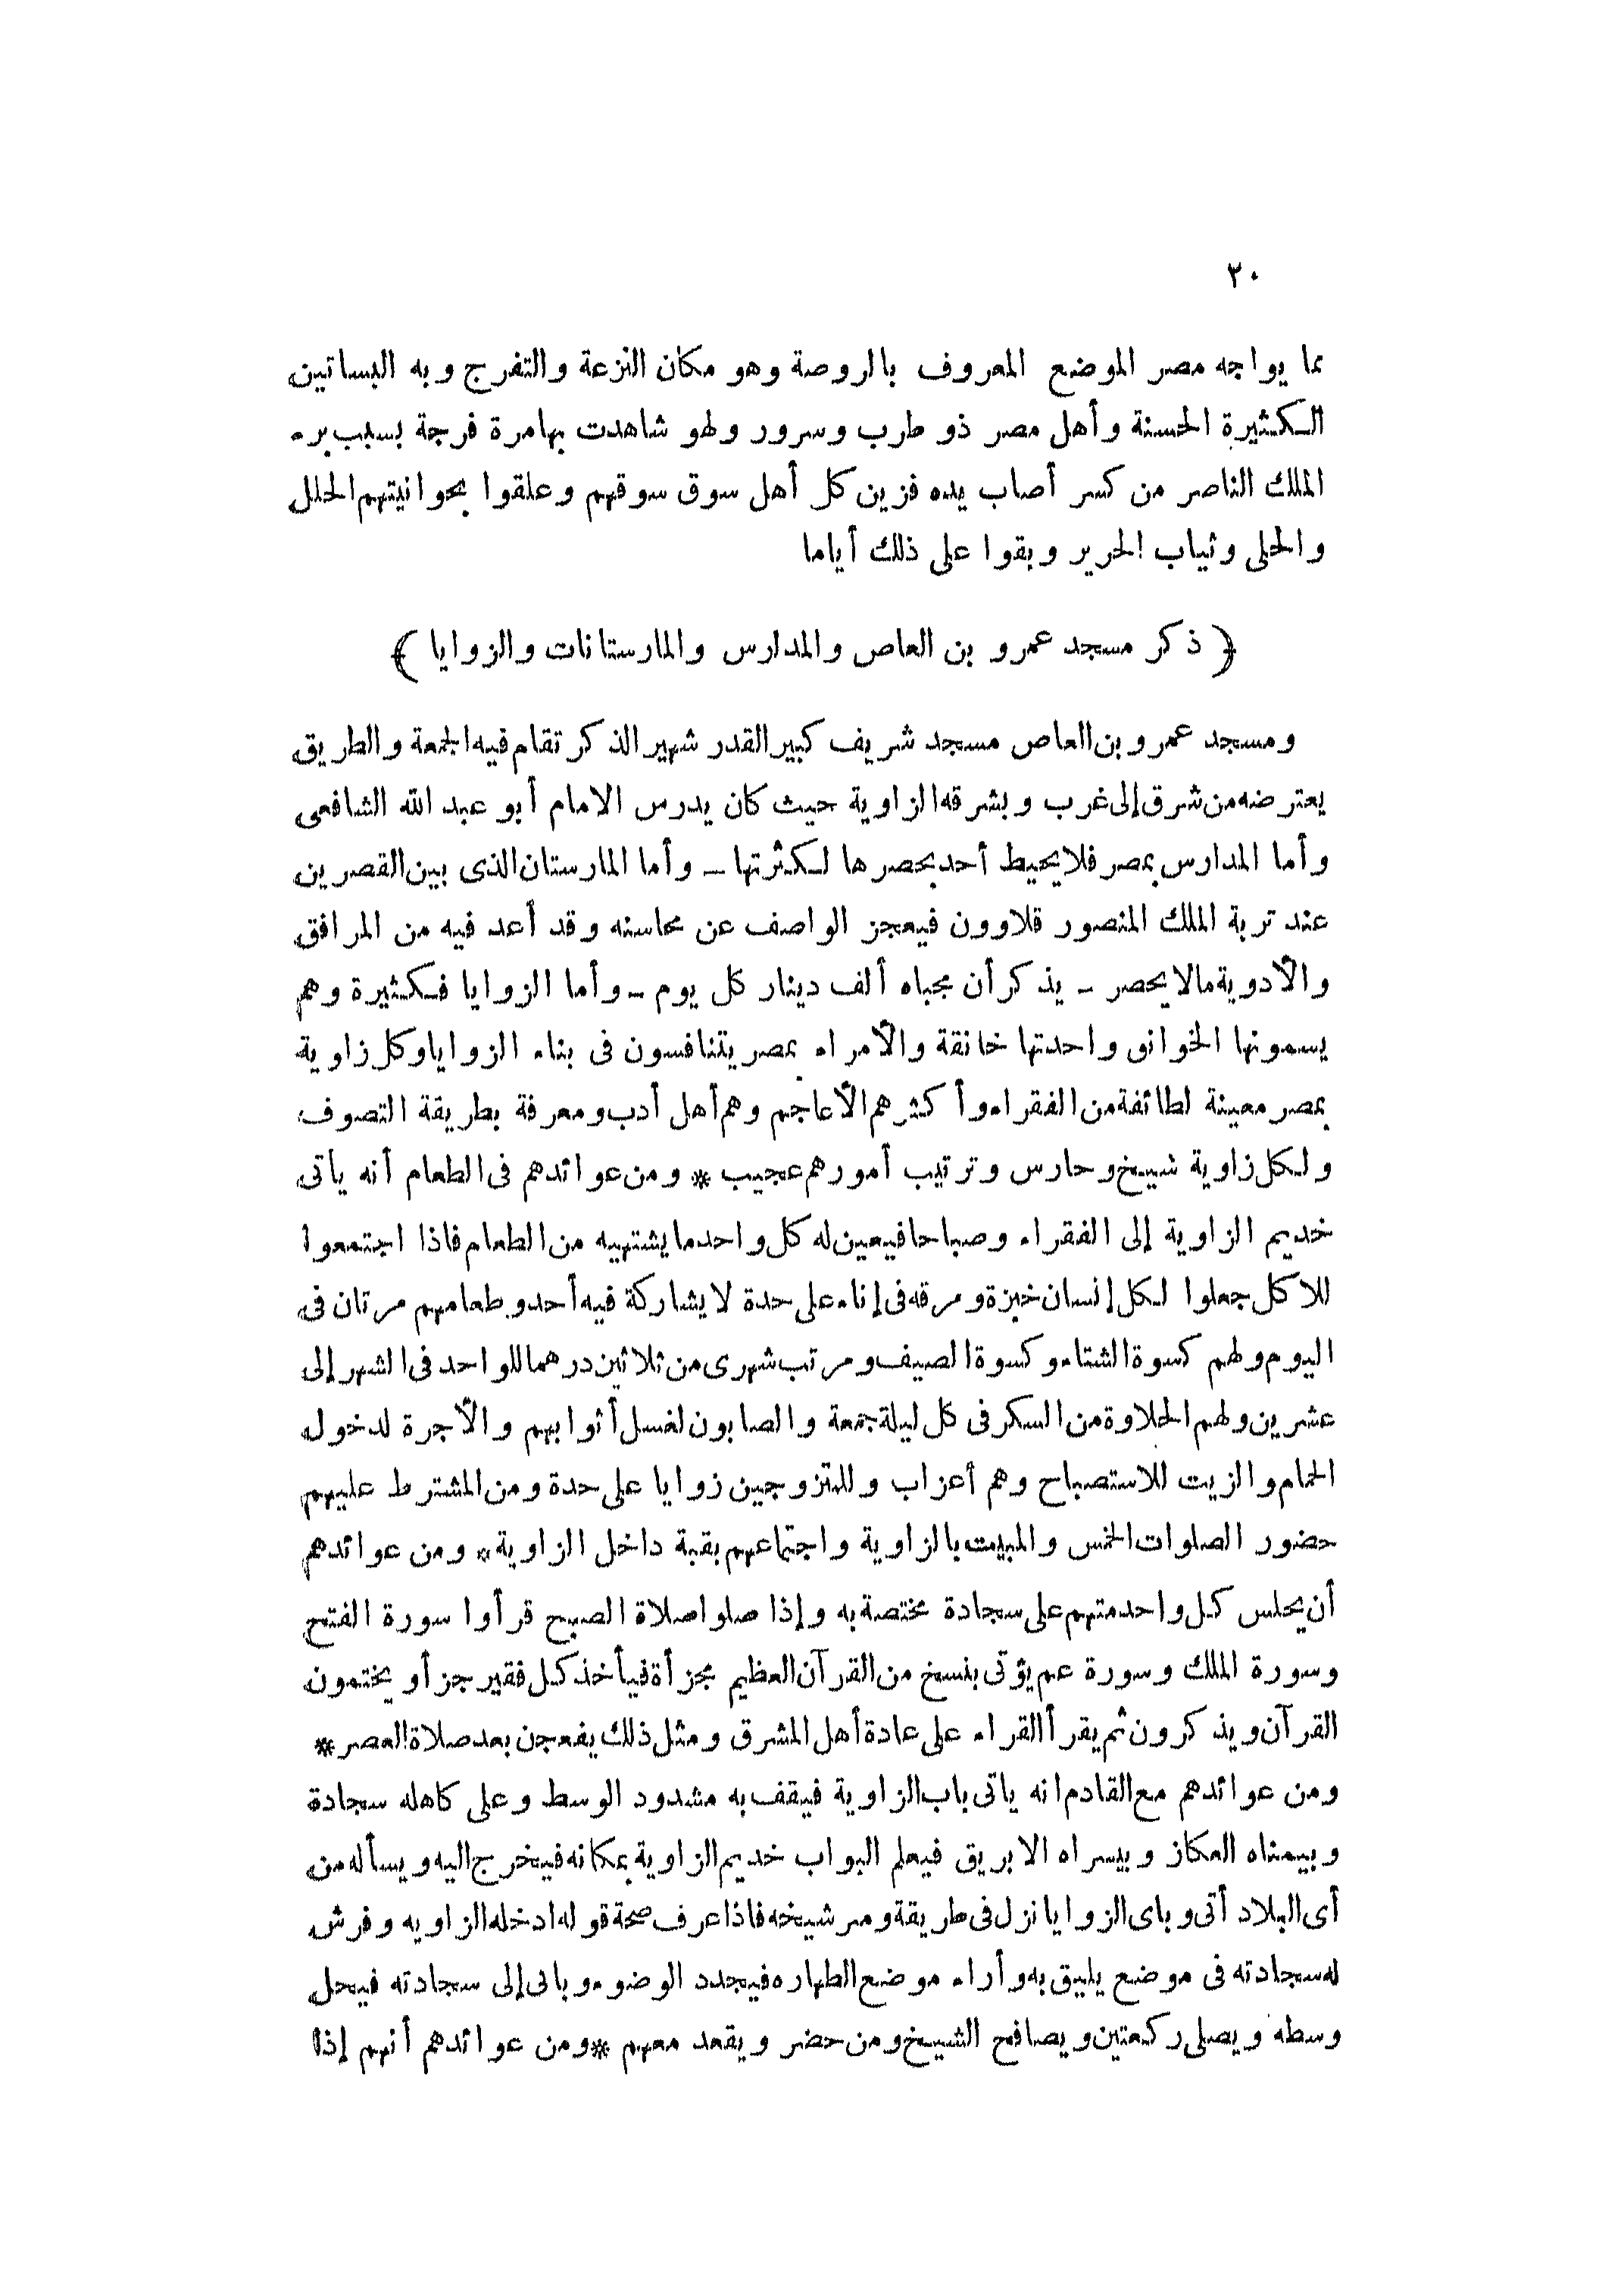 ٣٠
مما يواجه مصر الموضع المعروف بالروصة وهو مكان النزعة والتفرج وبه البساتين
الكثيرة الحسنة وأهل مصر ذو طرب وسرور ولهو شاهدت بها مرة فرجة بسبب برء
الملك الناصر من كسر أصاب يده فزين كل أهل سوق سوقهم وعلقوا بحوانيتهم الحلل
والحلى وثياب الحرير وبقوا على ذلك أياما
﴿ ذكر مسجد عمرو بن العاص والمدارس والمارستانات والزوايا ﴾
ومسجد عمرو بن العاص مسجد شريف كبير القدر شهير الذكر تقام فيه الجمعة والطريق
يعترضه من شرق إلى غرب وبشرقه الزاوية حيث كان يدرس الامام أبو عبد الله الشافعى
وأما المدارس بمصر فلا يحيط أحد بحصرها لكثرتها ــ وأما المارستان الذى بين القصرين
عند تربة الملك المنصور قلاوون فيعجز الواصف عن محاسنه وقد أعد فيه من المرافق
والأدوية مالا يحصر ــ يذكر أن مجباه ألف دينار كل يوم ــ وأما الزوايا فكثيرة وهم
يسمونها الخوانق واحدتها خانقة والأمراء بمصر يتنافسون فى بناء الزوايا وكل زاوية
بمصر معينة لطائفة من الفقراء وأكثرهم الأعاجم وهم أهل أدب ومعرفة بطريقة التصوف
ولكل زاوية شيخ وحارس وترتيب أمورهم عجيب * ومن عوائدهم فى الطعام أنه يأتى
خديم الزاوية إلى الفقراء وصباحا فيعين له كل واحد ما يشتهيه من الطعام فاذا اجتمعوا
للاكل جعلوا لكل إنسان خبزة ومرقه فى إناء على حدة لا يشاركة فيه أحد وطعامهم مرتان فى
اليوم ولهم كسوة الشتاء وكسوة الصيف ومرتب شهرى من ثلاثين درهما للواحد فى الشهر إلى
عشرين ولهم الحلاوة من السكر فى كل ليلة جمعة والصابون لغسل أثوابهم والأجرة لدخول
الحمام والزيت للاستصباح وهم أعزاب وللمتزوجين زوايا على حدة ومن المشترط عليهم
حضور الصلوات الخمس والمبيت بالزاوية واجتماعهم بقبة داخل الزاوية * ومن عوائدهم
أن يجلس كل واحد متهم على سجادة مختصة به وإذا صلوا صلاة الصبح قرأوا سورة الفتح
وسورة الملك وسورة عم يؤتى بنسخ من القرآن العظيم مجزأة فيأخذ كل فقير جزأ ويختمون
القرآن ويذكرون ثم يقرأ القراء على عادة أهل المشرق ومثل ذلك يفعجن بعد صلاة العصر *
ومن عوائدهم مع القادم انه ياتى باب الزاوية فيقف به مشدود الوسط وعلى كاهله سجادة
وبيمناه العكاز وبيسراه الابريق فيعلم البواب خديم الزاوية بمكانه فيخرج اليه ويسأله من
أى البلاد أتى وباى الزوايا نزل فى طريقة ومر شيخه فاذا عرف صحة قوله ادخله الزاويه وفرش
له سجادته فى موضع يليق به وأراء موضع الطهاره فيجدد الوضوء وياتى إلى سجادته فيحل
وسطه ويصلى ركعتين ويصافح الشيخ ومن حضر ويقعد معهم * ومن عوائدهم أنهم إذا